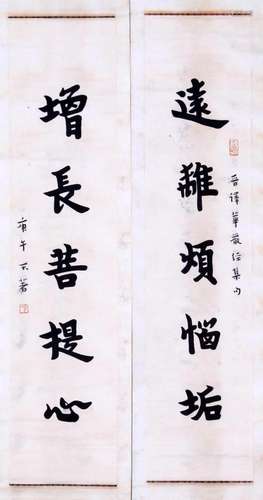 遠離煩惱垢
晉譯華嚴經集句
增長菩提心
庚午